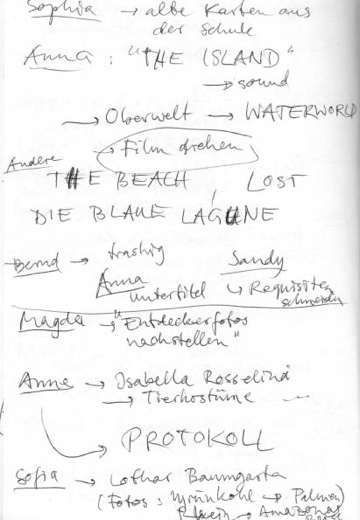 Sophia → alte Karten aus
der Schule
Anna : "THE ISLAND"
→ sound
→ Oberwelt → WATERWORLD
→ Film drehen
Andere
THE BEACH, LOST
DIE BLAUE LAGUNE
Bernd → trashig
Sandy
Anna
Untertitel ↳ Requisiten
Magda → "Entdeckerfotos
nachstellen"
Anne → Isabella Rosselina
→ Tierkostüme
→ PROTOKOLL
Sofia → Lothar Baumgarta
(Fotos : Grünkohl → Palmen)
Rhein → Amazonas